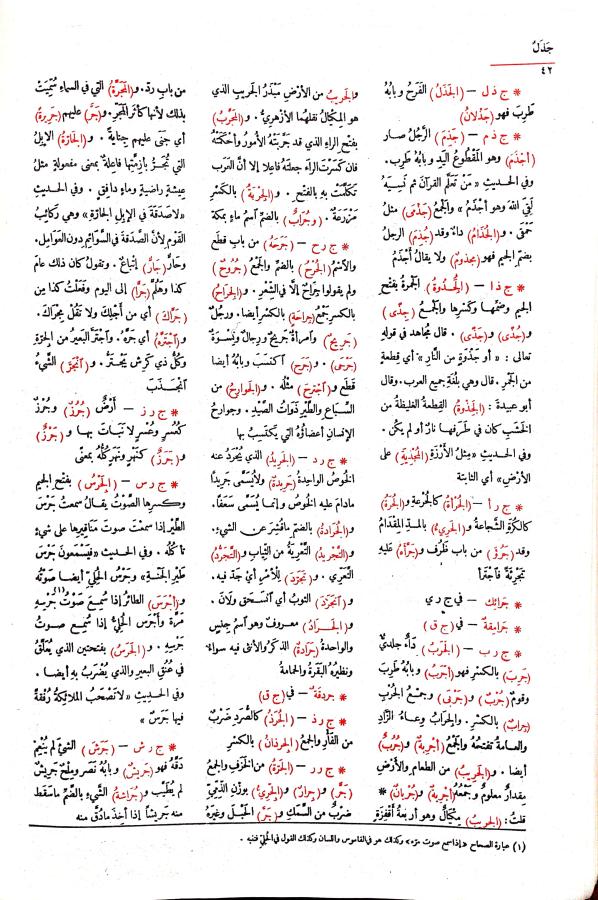 جَذَلُ
٤٢
* ج ذ ل — (الجَذَلُ) الفَرَحُ وبابُهُ
طَرِبَ فهو (جَذْلَانُ)
* ج ذ م — (جَذَمَ) الرَّجُلُ صار
(أَجْذَمَ) وهو المَقْطُوعُ اليَدِ وبابُهُ طَرِبَ.
وفي الحديثِ «مَنْ تَعَلَّمَ القرآنَ ثم نَسِيَهُ
لَقِيَ اللهَ وهو أَجْذَمُ» والجَمْعُ (جَذْمَى) مثلُ
حَمْقَى. و (الجُذَامُ) داءٌ وقد (جُذِمَ) الرجلُ
بضم الجيم فهو (مجذومٌ) ولا يقالُ أَجْذَمُ
* ج ذ ا — (الجُذْوَةُ) الجَمْرةُ بفتح
الجيم وضَمِّها وكَسْرِها والجَمْعُ (جِذًى)
و (جُذًى) و (جَذًى). قال مجاهد في قوله
تعالى: «أو جَذْوَةٍ من النَّارِ» أي قِطعةٍ
من الجَمْرِ. قال وهي بلُغَةِ جميع العرب. وقال
أبو عبيدة: (الجِذْوَةُ) القِطعةُ الغليظةُ من
الخَشَبِ كان في طَرَفِها نارٌ أو لم يكُن.
وفي الحديثِ «مِثلُ الأَرْزَةِ (المُجْذِيَةِ) على
الأرْضِ» أي الثابتة
* ج ر أ — (الجُرْأَةُ) كالجُرْعةِ و (الجُرَةُ)
كالكُرَةِ الشَّجاعةُ و (الجَرِيءُ) بالمدّ المِقْدَامُ
وقد (جَرُؤَ) من باب ظَرُفَ و (جَرَّأَهُ) عليه
تَجْرِئةً فاجْتَرَأَ
* جَرائِك — في ج ري
* جَرامِقَةٌ — في (ج ق)
* ج ر ب — (الجَرَبُ) داءٌ جلديٌّ
(جَرِبَ) بالكَسْرِ فهو (أجْرَبُ) وبابُهُ طَرِبَ
وقومٌ (جُرْبٌ) و (جَرْبَى) وجمعُ الجُرْبِ
(جِرابٌ) بالكَسْرِ. والجِرَابُ وعاءُ الزَّادِ
والعامةُ تفتحهُ والجَمْعُ (أجْرِبةٌ) و (جُرُبٌ)
أيضا. و (الجَرِيبُ) من الطعامِ والأرْضِ
مِقدارٌ معلومٌ وجَمْعُهُ (أجْرِبةٌ) و (جُرْبانٌ) *
قلتُ: (الجَرِيبُ) مِكْيَالٌ وهو أربعةُ أقْفِزَةٍ
والجَرِيبُ من الأرضِ مَبْذَرُ الجَرِيبِ الذي
هو المِكيالُ نقلهما الأزهريُّ. و (المُجَرَّبُ)
بفتح الراءِ الذي قد جَرَّبَتْهُ الأُمورُ وأَحْكَمَتْهُ
فإن كَسَرْتَ الراءَ جعلتَهُ فاعلا إلا أنَّ العَرَبَ
تَكَلَّمَتْ به بالفتحِ. و (الجِرْبَةُ) بالكَسْرِ
مَزْرَعةٌ. و (جُرابٌ) بالضمِّ اسمُ ماءٍ بمكة
* ج ر ح — (جَرَحَهُ) من باب قطعَ
والاسْمُ (الجُرْحُ) بالضمِّ والجَمْعُ (جُرُوحٌ)
ولم يقولوا جِرَاحٌ إلَّا في الشِّعْرِ. و (الجِرَاحُ)
بالكسرِ جَمْعُ (جِرَاحةٍ) بالكسْرِ أيضا. ورجُلٌ
(جَرِيحٌ) وآمرأةٌ جَرِيحٌ ورِجالٌ ونِسْوَةٌ
(جَرْحَى). و (جَرَحَ) اكتسَبَ وبابُهُ أيضا
قَطَعَ و (اجْتَرَحَ) مِثْلُه. و (الجَوَارِحُ) من
السِّبَاعِ والطَّيْرِ ذَوَاتُ الصَّيْدِ. وجوارحُ
الإنسانِ أعضاؤهُ التي يكتسبُ بها
* ج ر د — (الجَرِيدُ) الذي يُجَرَّدُ عنه
الخُوصُ الواحدةُ (جَرِيدةٌ) ولا يُسَمَّى جَرِيدًا
مادام عليه الخُوصُ وإنما يُسَمَّى سَعَفًا.
و (الجُرَادَةُ) بالضمِّ ما قُشِرَ عن الشيءِ.
و (التَّجْرِيدُ) التَّعْرِيةُ من الثِّيابِ و (التَّجَرُّدُ)
التَّعَرِّي. و (تَجَرَّدَ) للأمْرِ أي جَدَّ فيه.
و (انْجَرَدَ) الثَّوبُ أي انْسَحَقَ ولَانَ.
و (الجَرَادُ) معروفٌ وهو اسمُ جِنسٍ
والواحدةُ (جَرَادةٌ) الذكَرُ والأنثى فيه سواءٌ
ونظيرُهُ البَقَرةُ والحَمامةُ
* جردقةٌ — في (ج ق)
* ج ر ذ — (الجُرَذُ) كالصُّرَدِ ضَرْبٌ
من الفَأْرِ والجمعُ (الجِرذانُ) بالكَسْرِ
* ج ر ر — (الجَرَّةُ) من الخَزَفِ والجمعُ
(جَرٌّ) و (جِرارٌ) و (الجِرِّيُّ) بوزنِ الذِّمِّيِّ
ضَربٌ من السَّمَكِ و (جَرَّ) الحَبْلَ وغيرَهُ
من باب ردّ. و (المَجَرَّةُ) التي في السماءِ سُمِّيَتْ
بذلك لأنها كأثَرِ المَجَرِّ. و (جَرَّ) عليهم (جَرِيرةً)
أي جَنَى عليهم جِنَايةً. و (الجارَّةُ) الإبِلُ
التي تُجَرُّ بأزِمَّتِها فاعِلةٌ بمعنى مفعولةٍ مثلُ
عِيشَةٍ راضِيةٍ وماءٍ دافقٍ. وفي الحديثِ
«لاصَدَقةَ في الإبِلِ الجارَّةِ» وهي رَكائِبُ
القَوْمِ لأنَّ الصَّدَقةَ في السَّوائِمِ دونَ العَوامِلِ.
وحارٌّ (جارٌّ) إتْباعٌ. وتقولُ كان ذلك عامَ
كذا وهَلُمَّ (جَرًّا) إلى اليوم وفَعَلْتُ كذا مِن
(جَرَّاكَ) أي من أجْلِكَ ولا تَقُلْ مِجْرَاكَ.
و (اجْتَرَّهُ) أي جَرَّهُ. واجْتَرَّ البَعيرُ من الجِرَّةِ
وكلُّ ذي كَرِشٍ يَجْتَرُّ. و (انْجَرَّ) الشيءُ
انْجَذَبَ
* ج ر ز — أرْضٌ (جُرُزٌ) وجُرْزٌ
كعُسُرٍ وعُسْرٍ لا نَبَاتَ بها و (جَرْزٌ)
و (جَرَزٌ) كنَهْرٍ ونَهَرٍ كُلُّه بمعنًى
* ج ر س — (الجَرْسُ) بفتحِ الجيمِ
وكسرِها الصَّوْتُ يقالُ سمعتُ جَرْسَ
الطَّيْرِ إذا سَمِعْتَ صوتَ مَناقيرِها على شيءٍ
تأكُلُه. وفي الحديثِ «فيَسْمَعونَ جَرْسَ
طَيْرِ الجَنَّةِ» وجَرْسُ الحُلِيِّ أيضا صَوْتُهُ
و (أجْرَسَ) الطائرُ إذا سُمِعَ صَوْتُ جَرْسِهِ (١)
مَرَّةً وأجْرَسَ الحُلِيُّ إذا سُمِعَ صوتُ
جَرْسِهِ. و (الجَرَسُ) بفتحتينِ الذي يُعلَّقُ
في عُنُقِ البعيرِ والذي يُضْرَبُ به أيضا.
وفي الحديثِ «لا تَصْحَبُ الملائكةُ رُفْقَةً
فيها جَرَسٌ»
* ج ر ش — (جَرَشَ) الشيءَ لم يُنْعِمْ
دَقَّهُ فهو (جَرِيشٌ) وبابُهُ نَصَرَ ومِلْحٌ جَرِيشٌ
لم يُطَيَّبْ و (جُرَاشةُ) الشَّيءِ بالضمِّ ماسَقَطَ
منه جَرِيشًا إذا أُخِذَ مادُقَّ منه
(١) عبارة الصحاح «إذا سمع صوت مره» وكذلك هو في القاموس واللسان وكذلك القول في الحُلِيّ فتنبه.